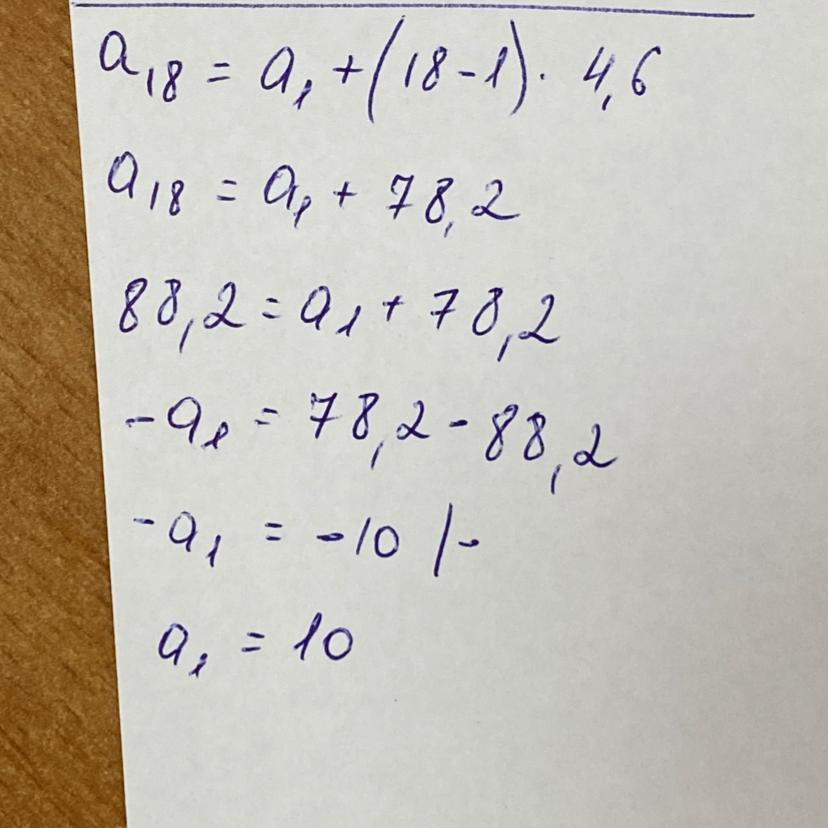 a₁₈ = a₁ + (18 - 1) · 4,6
a₁₈ = a₁ + 78,2
88,2 = a₁ + 78,2
-a₁ = 78,2 - 88,2
-a₁ = -10 /-
a₁ = 10